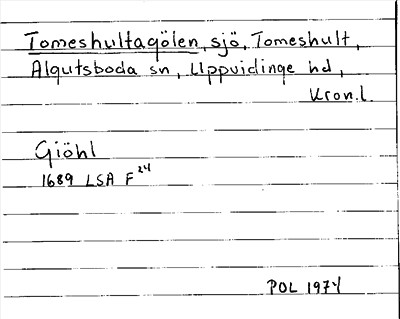 Tomeshultagölen, sjö, Tomeshult,
Algutsboda sn, Uppvidinge hd,
Kron.l.
Giöhl
1689 LSA F 24
POL 1974